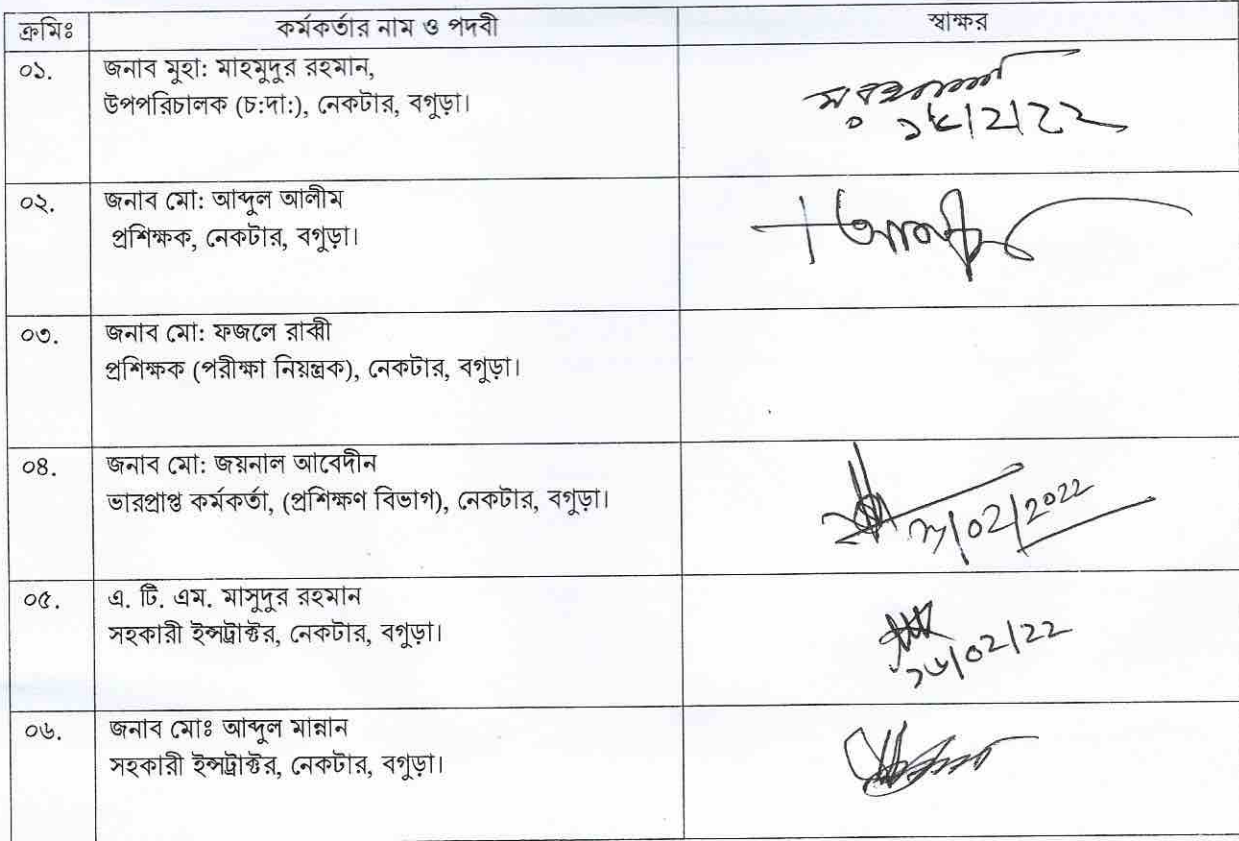 ক্রমিঃ কর্মকর্তার নাম ও পদবী স্বাক্ষর
০১. জনাব মুহা: মাহমুদুর রহমান,
উপপরিচালক (চ:দা:), নেকটার, বগুড়া।
০২. জনাব মো: আব্দুল আলীম
প্রশিক্ষক, নেকটার, বগুড়া।
০৩. জনাব মো: ফজলে রাব্বী
প্রশিক্ষক (পরীক্ষা নিয়ন্ত্রক), নেকটার, বগুড়া।
০৪. জনাব মো: জয়নাল আবেদীন
ভারপ্রাপ্ত কর্মকর্তা, (প্রশিক্ষণ বিভাগ), নেকটার, বগুড়া।
/02/2022
০৫. এ. টি. এম. মাসুদুর রহমান
সহকারী ইন্সট্রাক্টর, নেকটার, বগুড়া।
১৬/02/22
০৬. জনাব মোঃ আব্দুল মান্নান
সহকারী ইন্সট্রাক্টর, নেকটার, বগুড়া।